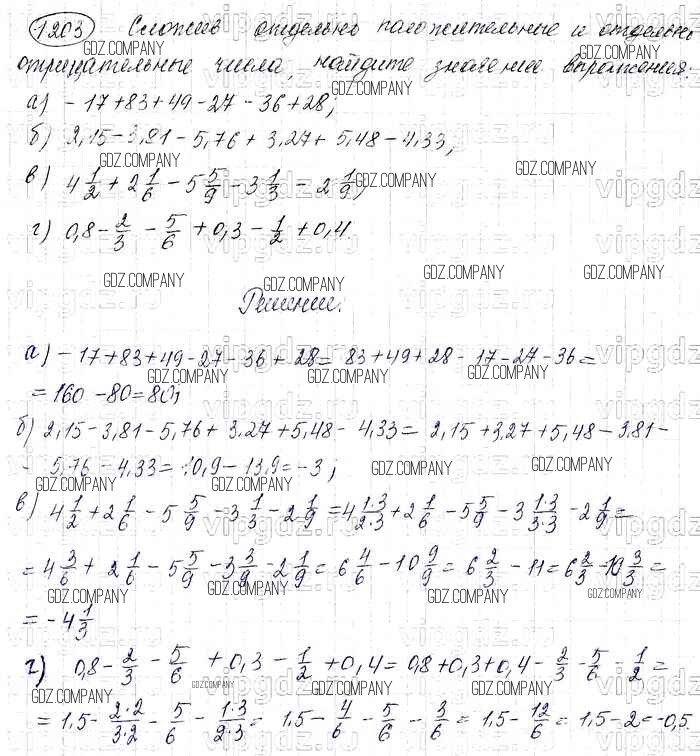 1203 Сложив отдельно положительные и отдельно
отрицательные числа, найдите значение выражения:
а) -17+83+49-27-36+28;
б) 2,15-3,81-5,76+3,27+5,48-4,33;
в) 4 1/2 + 2 1/6 - 5 5/9 - 3 1/3 - 2 1/9;
г) 0,8 - 2/3 - 5/6 + 0,3 - 1/2 + 0,4.
Решение.
а) -17+83+49-27-36+28= 83+49+28-17-27-36=
=160-80=80;
б) 2,15-3,81-5,76+3,27+5,48-4,33= 2,15+3,27+5,48-3,81-
- 5,76-4,33=10,9-13,9=-3;
в) 4 1/2 + 2 1/6 - 5 5/9 - 3 1/3 - 2 1/9 = 4 1·3/2·3 + 2 1/6 - 5 5/9 - 3 1·3/3·3 - 2 1/9 =
= 4 3/6 + 2 1/6 - 5 5/9 - 3 3/9 - 2 1/9 = 6 4/6 - 10 9/9 = 6 2/3 - 11 = 6 2/3 - 10 3/3 =
= -4 1/3
г) 0,8 - 2/3 - 5/6 + 0,3 - 1/2 + 0,4 = 0,8+0,3+0,4 - 2/3 - 5/6 - 1/2 =
= 1,5 - 2·2/3·2 - 5/6 - 1·3/2·3 = 1,5 - 4/6 - 5/6 - 3/6 = 1,5 - 12/6 = 1,5-2=-0,5
GDZ.COMPANY
vipgdz.ru